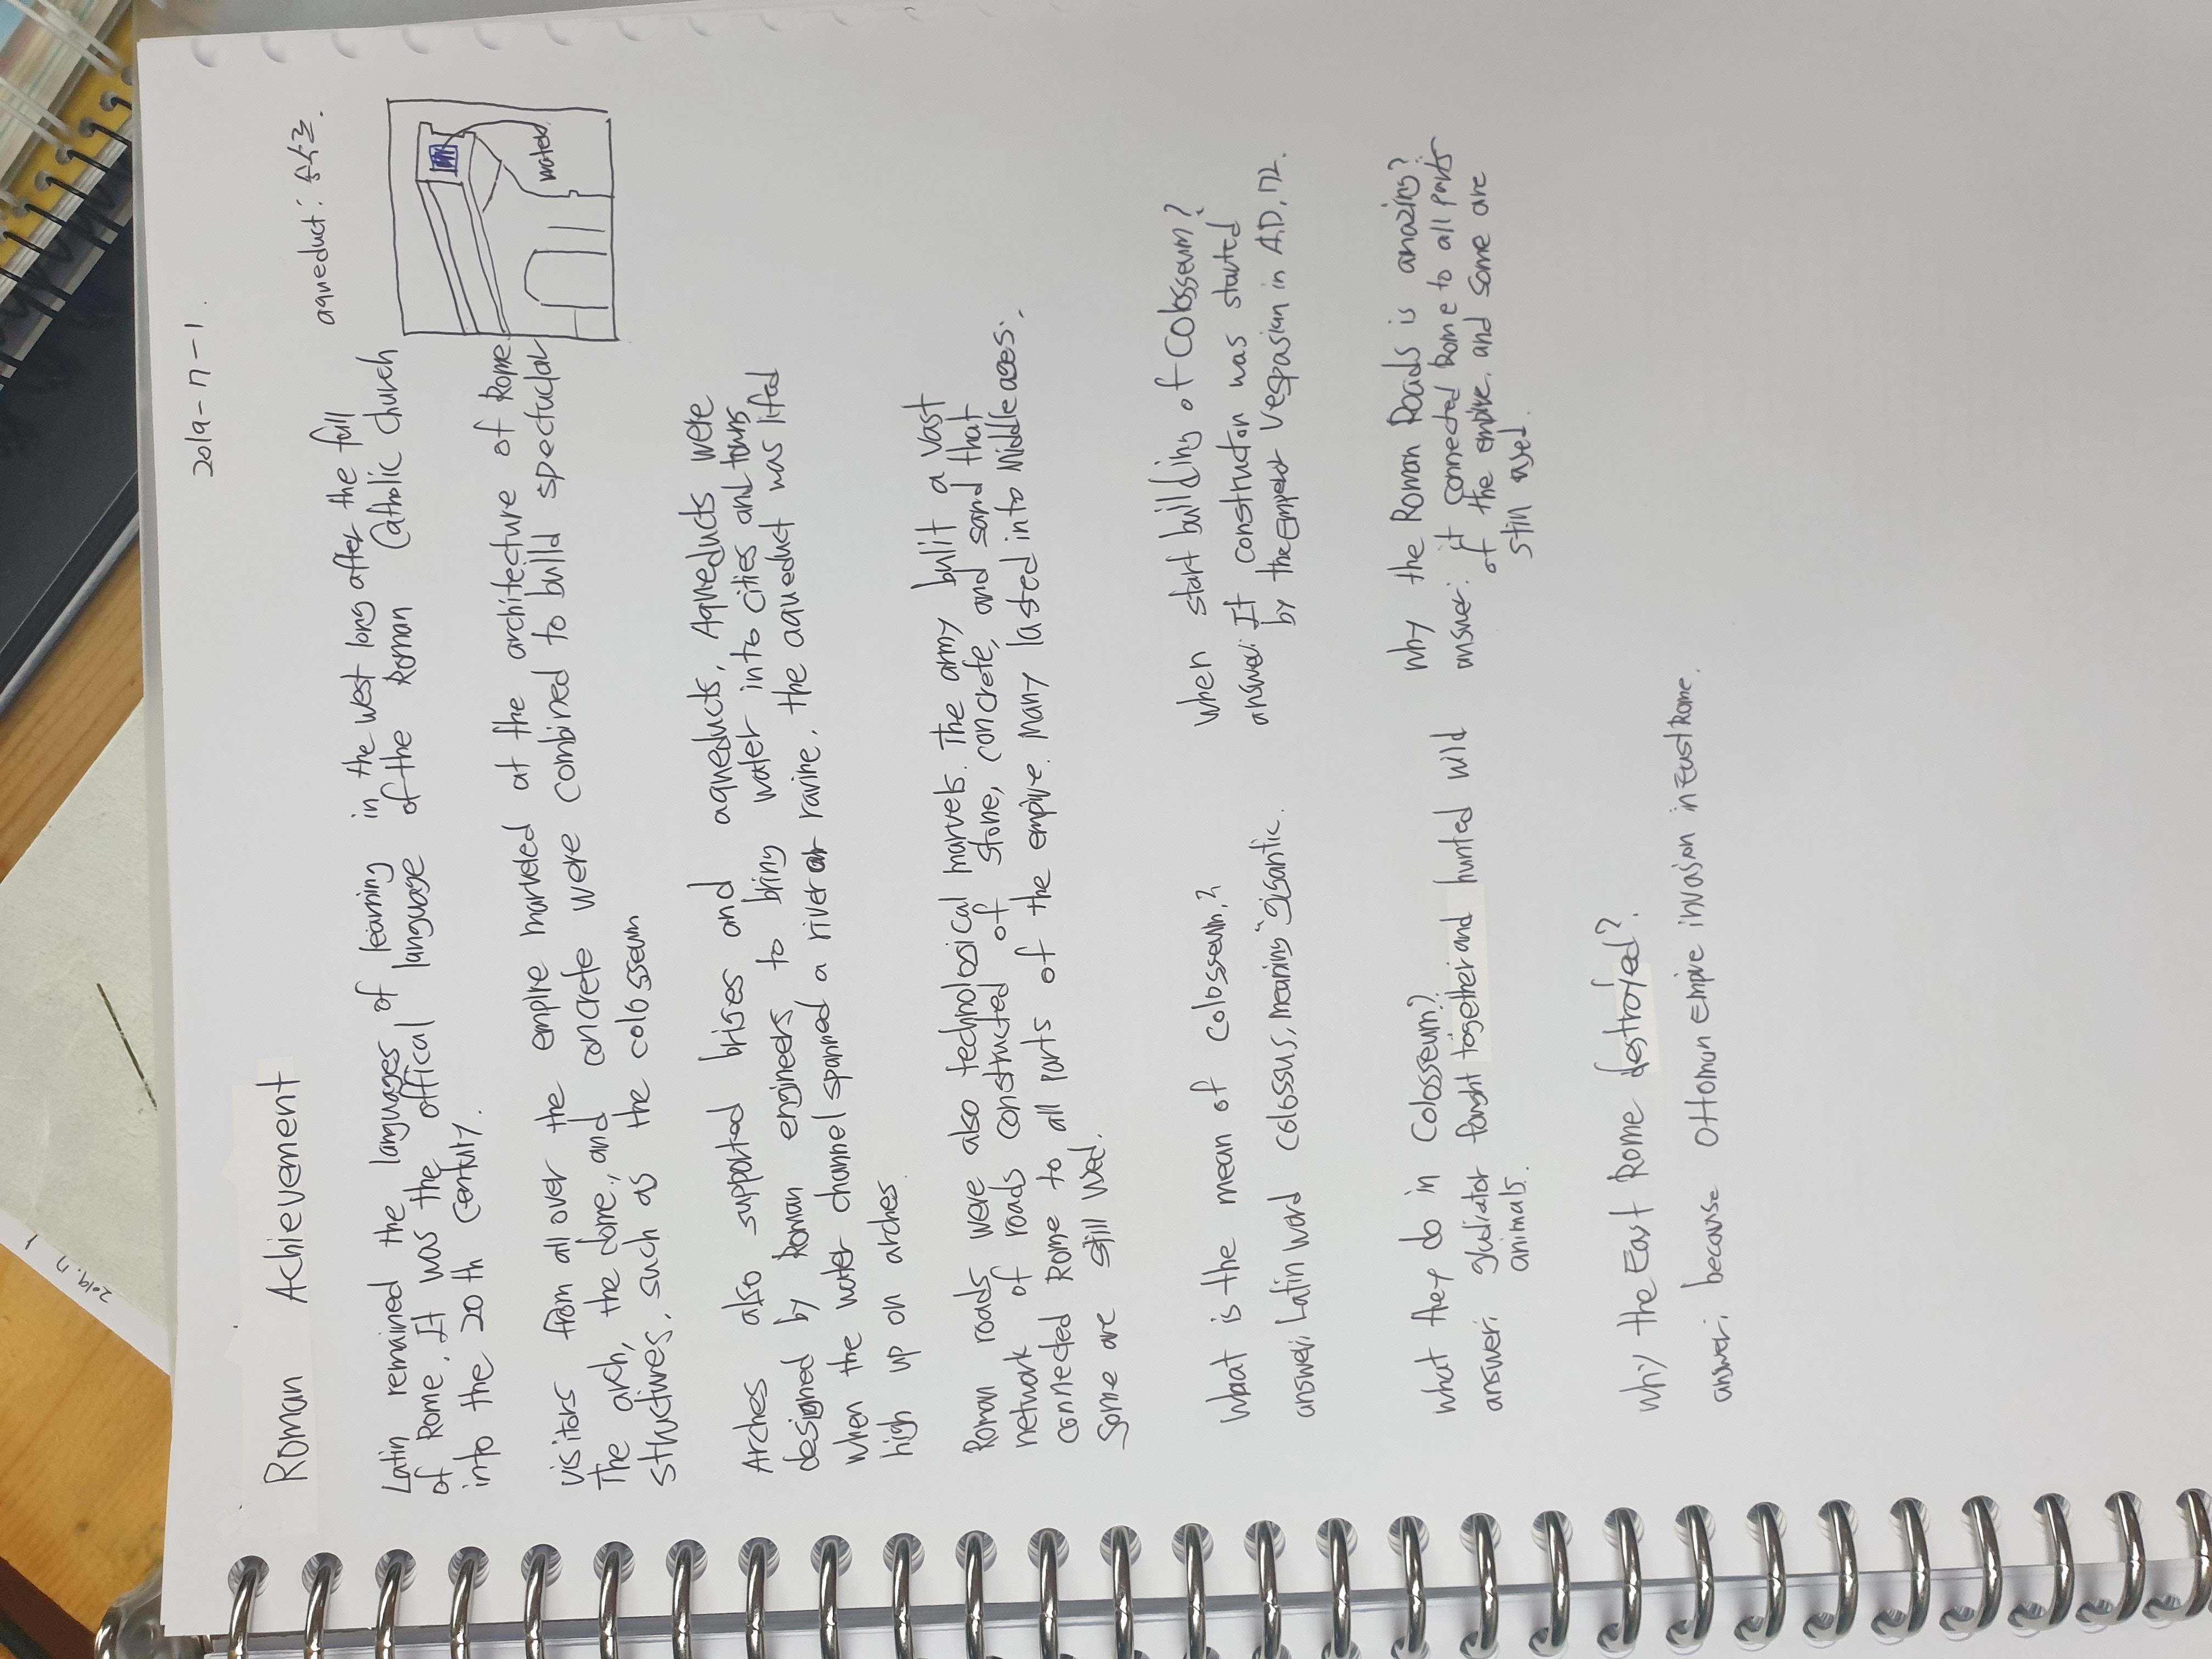 2019-7-1.
Roman Achievement
aqueduct: 송수로.
Latin remained the languages of learning in the west long after the fall
of Rome. It was the offical language of the Roman Catholic church
into the 20th century.
visitors from all over the empire marveled at the architecture of Rome.
The arch, the dome, and concrete were combined to build spectuclar
structures, such as the colosseum
water
Arches also supported brises and aqueducts, Aqueducts were
designed by Roman engineers to bring water into cities and towns
when the water channel spanned a river or ravine, the aqueduct was lifed
high up on arches
Roman roads were also technological marvels. The army bulit a vast
network of roads constructed of stone, concrete, and sand that
connected Rome to all parts of the empire. Many lasted into Middle ages.
Some are still used.
What is the mean of colosseum?
answer: Latin word colossus, meaning "gigantic.
When start building of Colosseum?
answer: It construction was started
by the Emperor Vespasian in A.D, 72.
what they do in Colosseum?
answer: gladiator fought together and hunted wild
animals.
why the Roman Roads is amazing?
answer: it connected Rome to all parts
of the empire, and some are
still used.
why the East Rome destroyed?
answer: because Ottoman Empire invasion in East Rome.
2019.7.1